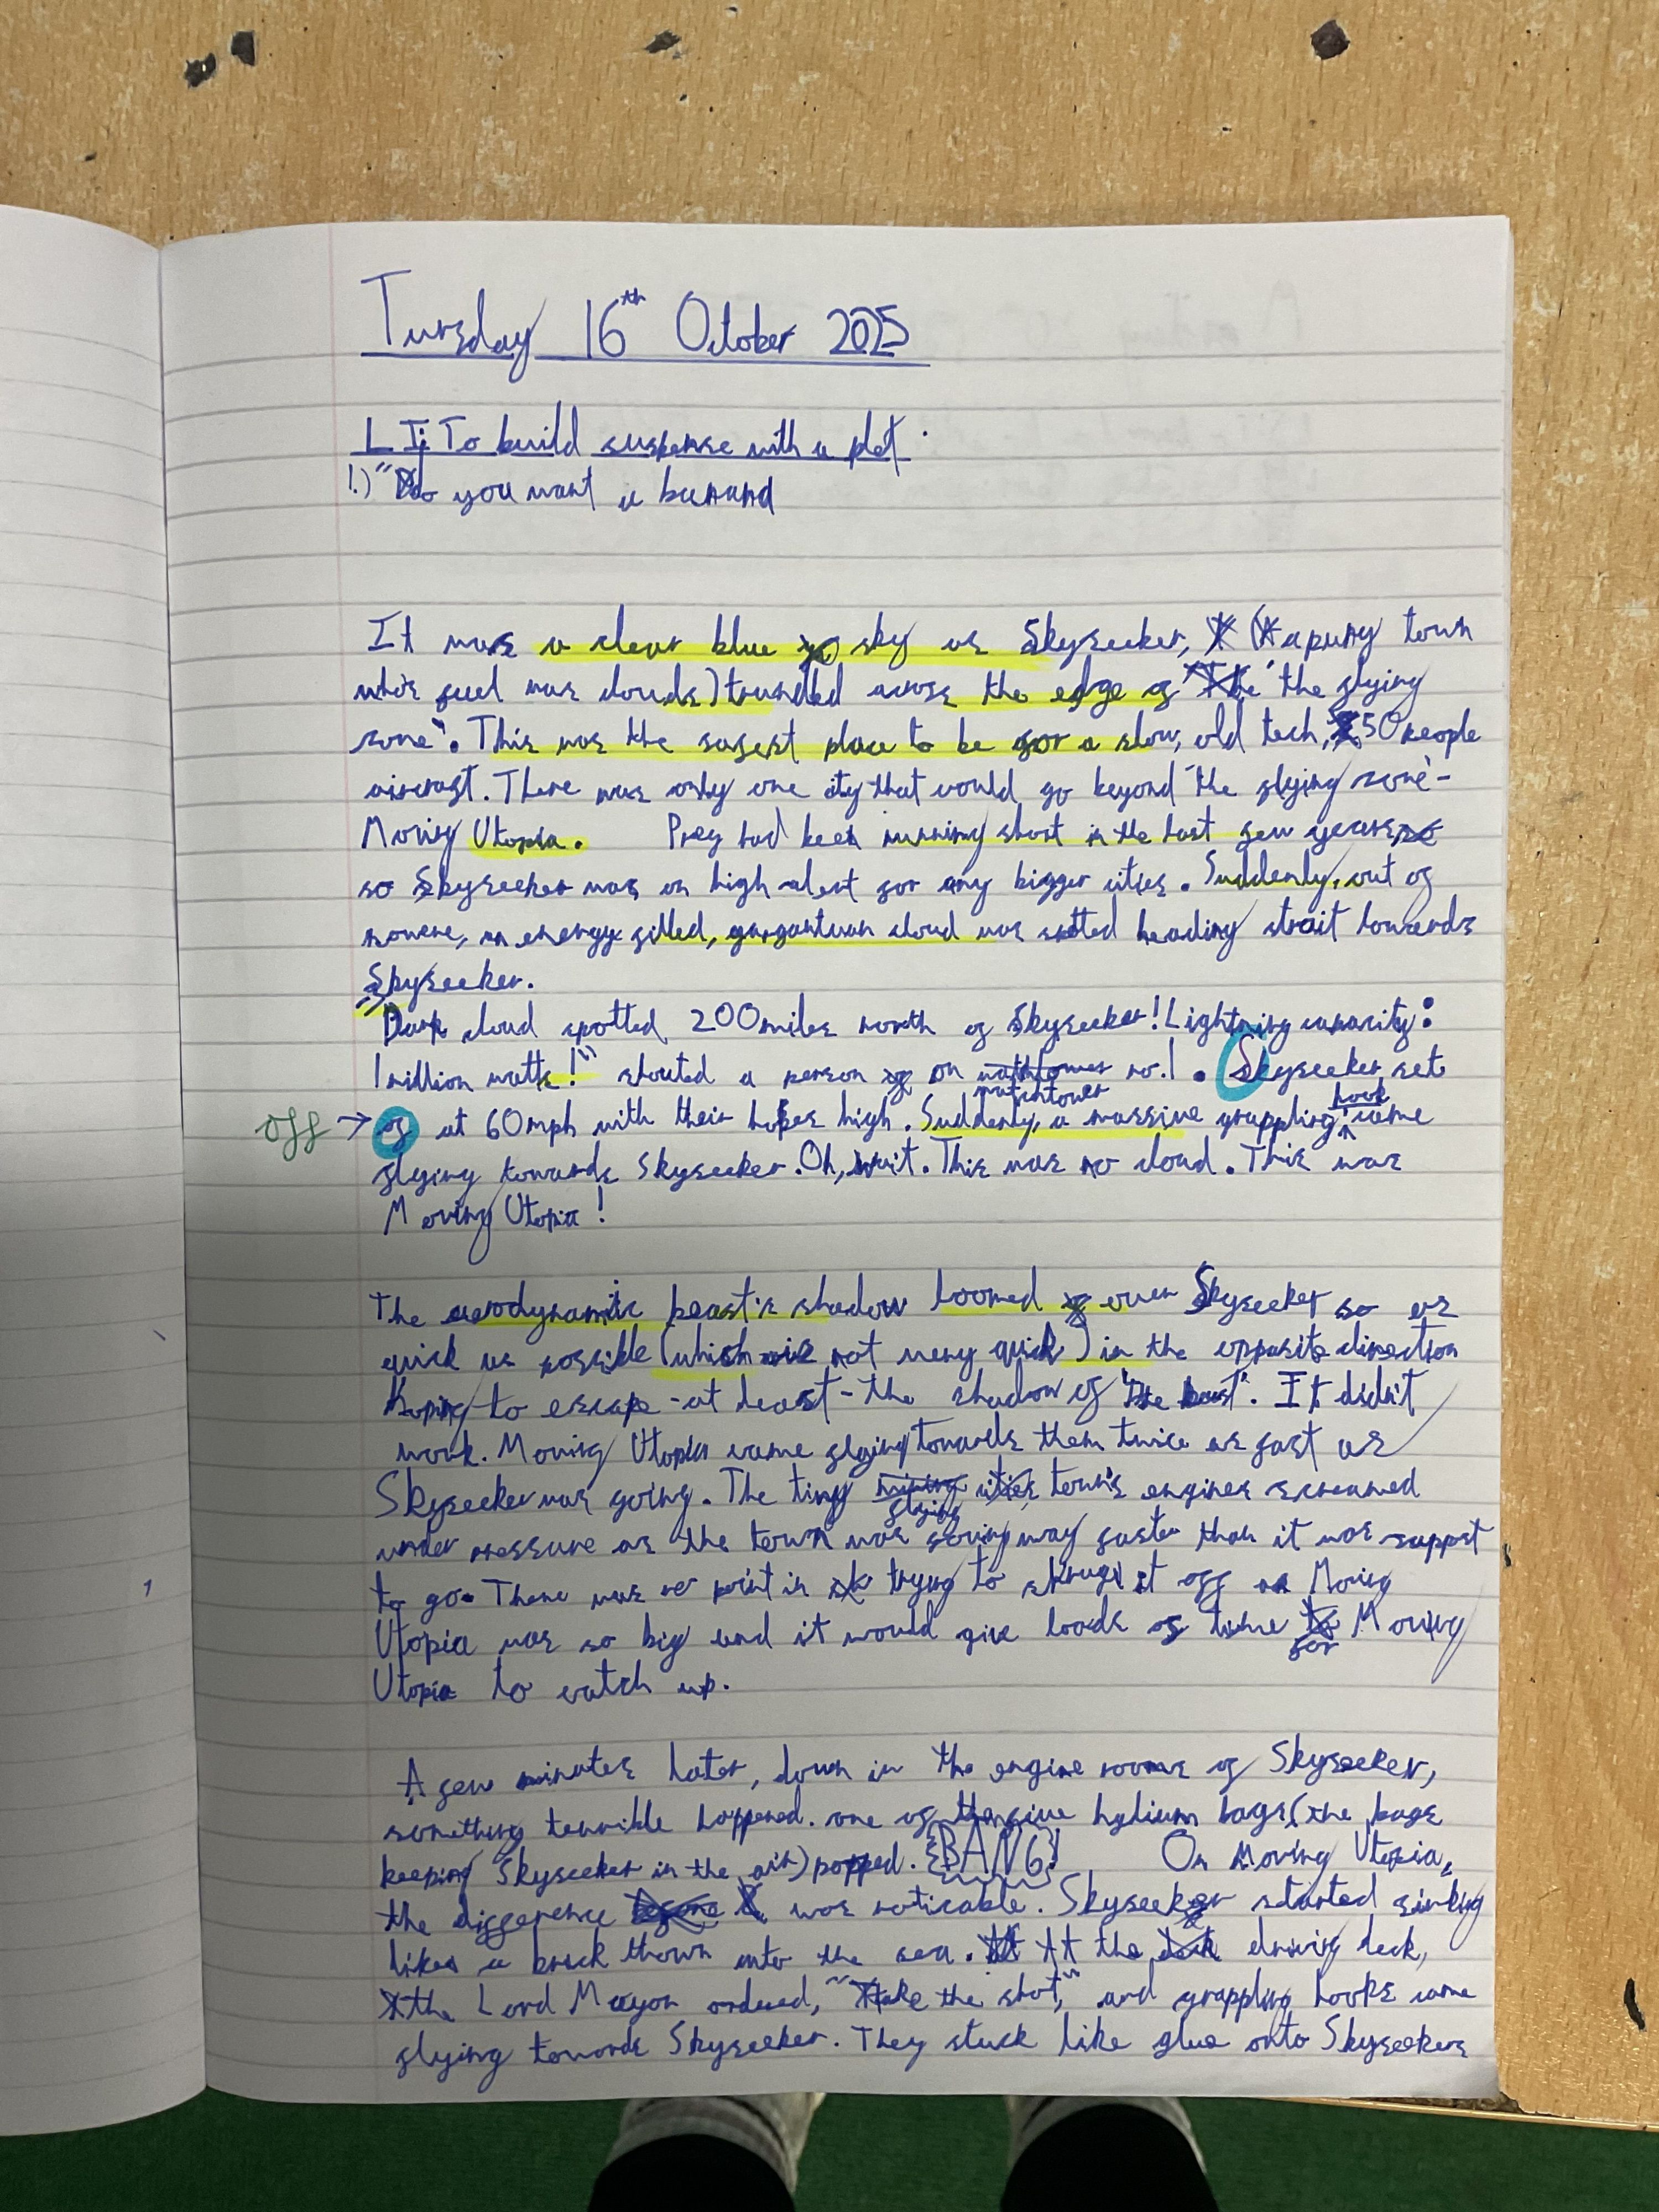 Tuesday 16th October 2025
LI: To build suspense with a plot.
1.) "Do you want a banana
It was a clear blue sky as Skyseeker, (a puny town
who's fuel was clouds) trundled across the edge of 'the flying
zone'. This was the safest place to be for a slow, old tech, 50 people
aircraft. There was only one city that would go beyond 'the flying zone' -
Moving Utopia. Prey had been running short in the last few years
so Skyseeker was on high-alert for any bigger cities. Suddenly, out of
nowere, an energy filled, gargantuan cloud was sotted heading strait towards
Skyseeker.
"Dark cloud spotted 200miles north of Skyseeker! Lightning capacity:
1 million watts!" shouted a person on watchtower no.1. Skyseeker set
off → of at 60mph with their hopes high. Suddenly, a massive grappling hook came
flying towards Skyseeker. Oh, wait. This was no cloud. This was
Moving Utopia!
The aerodynamic beast's shadow loomed over Skyseeker so as
quick as possible (which is not very quick) in the opposite direction
hoping to escape - at least - the shadow of 'the beast'. It didn't
work. Moving Utopia came flying towards them twice as fast as
Skyseeker was going. The tiny flying town's engines screamed
under pressure as the town was going way faster than it was suppost
to go. There was no point in trying to shrug it off as Moving
Utopia was so big and it would give loads of time for Moving
Utopia to catch up.
A few minutes later, down in the engine rooms of Skyseeker,
something terrible happened. one of the five hylium bags (the bags
keeping Skyseeker in the air) popped. BANG! On Moving Utopia,
the difference was noticable. Skyseeker started sinking
like a brick thown into the sea. At the driving deck,
the Lord Mayor ordered, "Take the shot," and grappling hooks came
flying towards Skyseeker. They stuck like glue onto Skyseekers